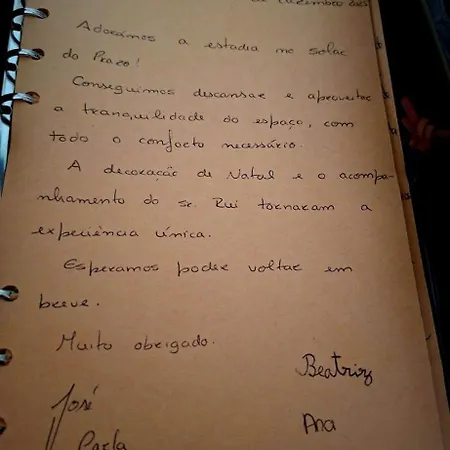 de Dezembro 2023
Adorámos a estadia no solar
do Prazo!
Conseguimos descansar e aproveitar
a tranquilidade do espaço, com
todo o conforto necessário.
A decoração de Natal e o acompa-
nhamento do sr. Rui tornaram a
experiência única.
Esperamos poder voltar em
breve.
Muito obrigado.
Beatriz
José
Ana
Carla